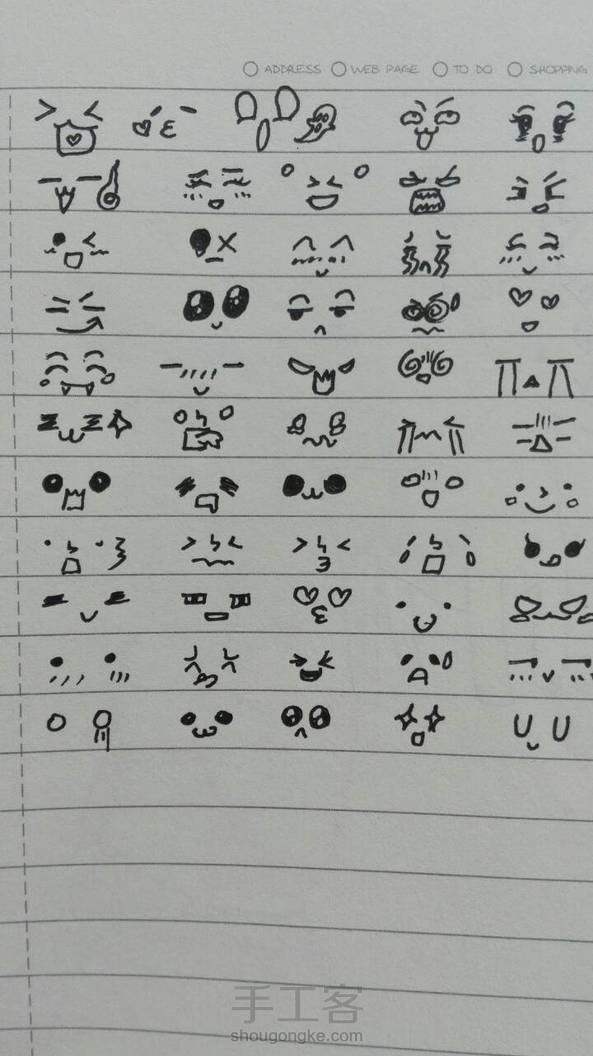 ADDRESS WEB PAGE TO DO SHOPPING
手工客
shougongke.com